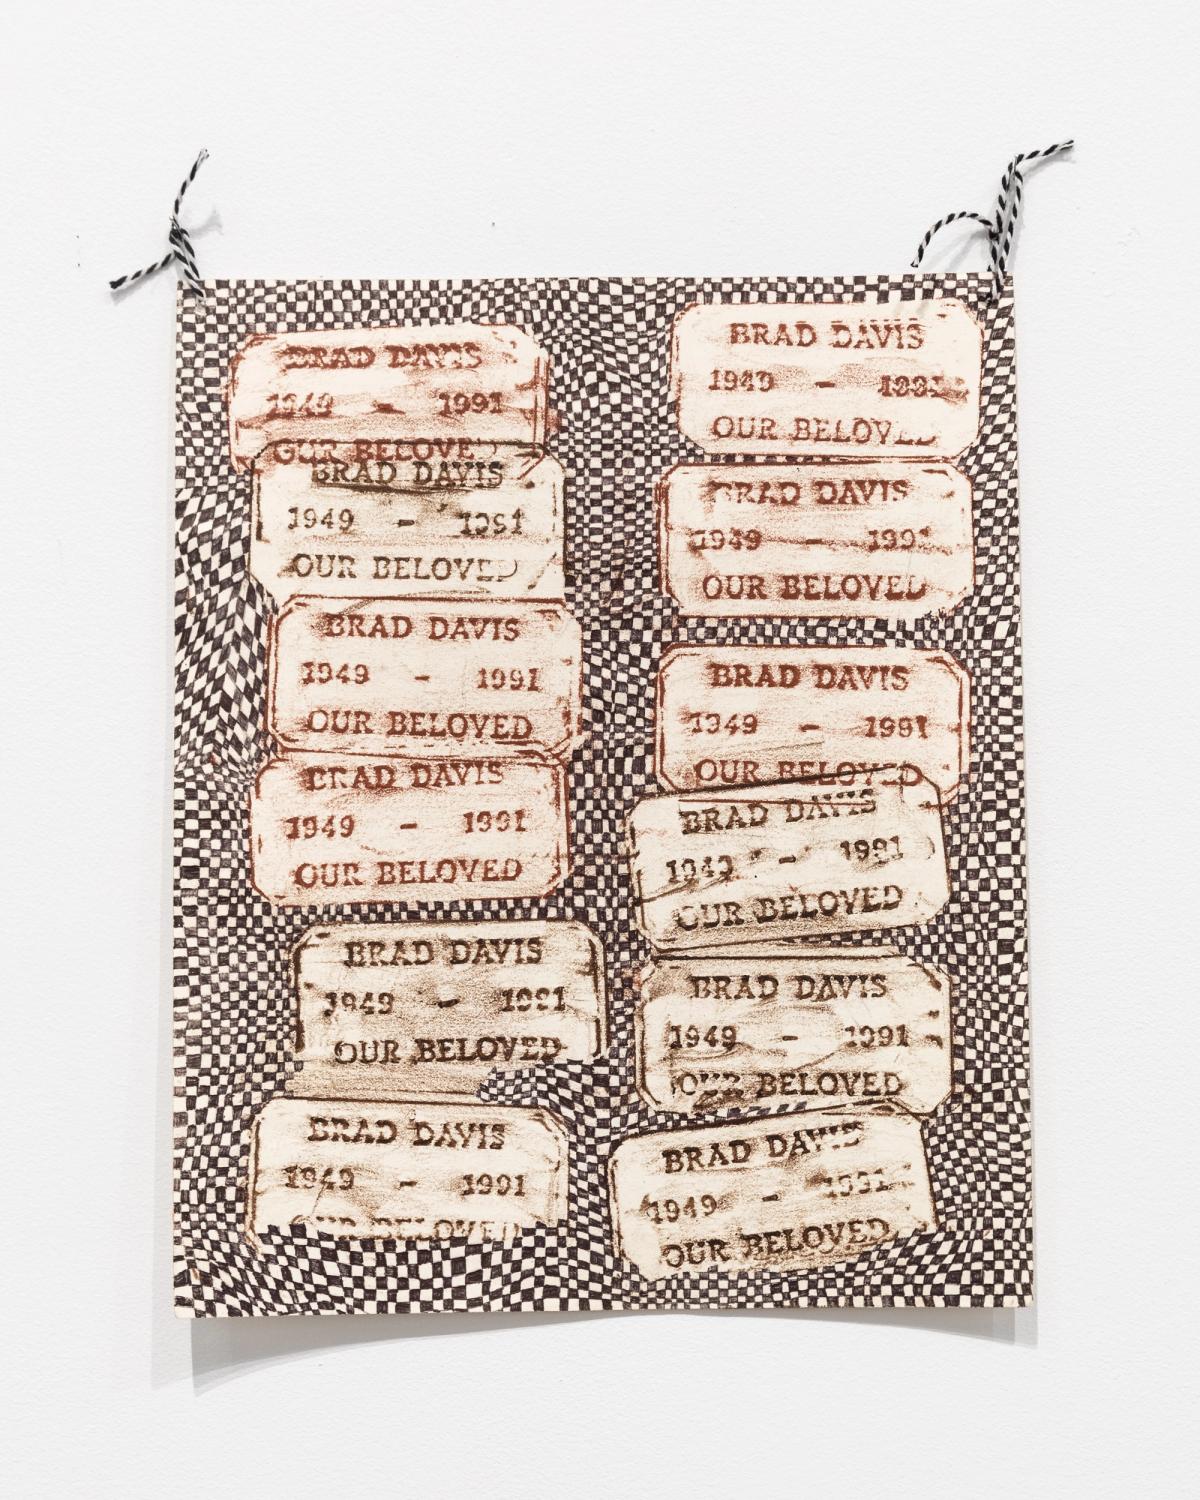 BRAD DAVIS
1949 - 1991
OUR BELOVED
BRAD DAVIS
1949 - 1991
OUR BELOVED
BRAD DAVIS
1949 - 1991
OUR BELOVED
BRAD DAVIS
1949 - 1991
OUR BELOVED
BRAD DAVIS
1949 - 1991
OUR BELOVED
BRAD DAVIS
1949 - 1991
OUR BELOVED
BRAD DAVIS
1949 - 1991
OUR BELOVED
BRAD DAVIS
1949 - 1991
OUR BELOVED
BRAD DAVIS
1949 - 1991
OUR BELOVED
BRAD DAVIS
1949 - 1991
OUR BELOVED
BRAD DAVIS
1949 - 1991
OUR BELOVED
BRAD DAVIS
1949 - 1991
OUR BELOVED